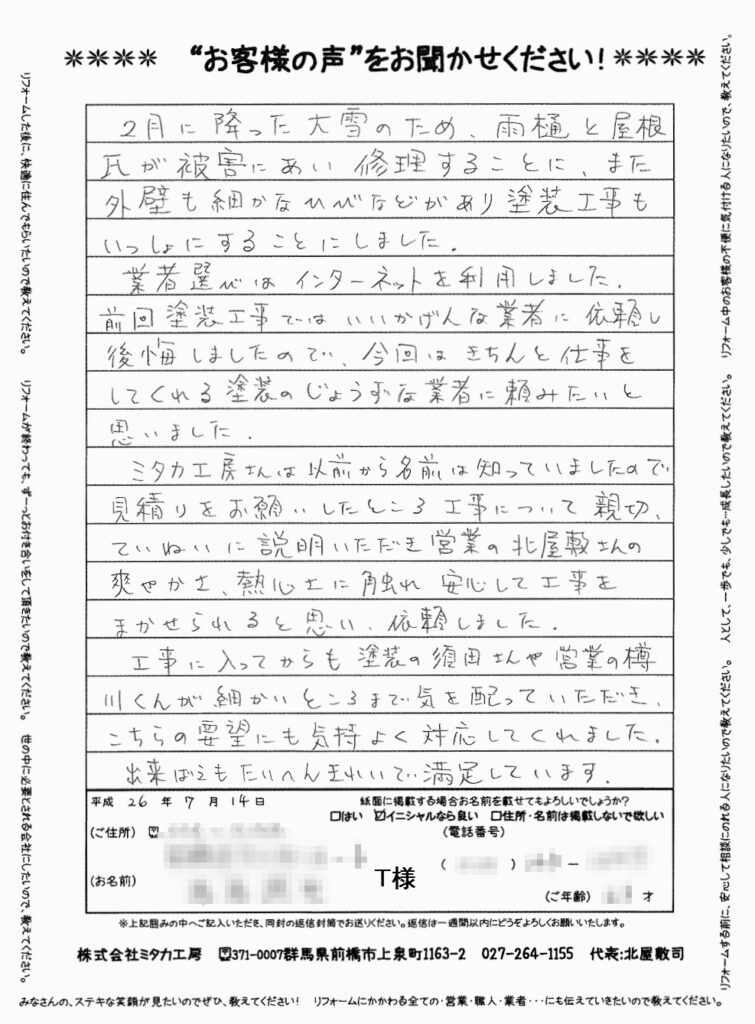 ＊＊＊＊ “お客様の声”をお聞かせください！＊＊＊＊
2月に降った大雪のため、雨樋と屋根
瓦が被害にあい修理することに、また
外壁も細かなひびなどがあり塗装工事も
いっしょにすることにしました。
業者選びはインターネットを利用しました。
前回塗装工事ではいいかげんな業者に依頼し
後悔しましたので、今回はきちんと仕事を
してくれる塗装のじょうずな業者に頼みたいと
思いました。
ミタカ工房さんは以前から名前は知っていましたので
見積りをお願いしたところ工事について親切、
ていねいに説明いただき営業の北屋敷さんの
爽やかさ、熱心さに触れ安心して工事を
まかせられると思い、依頼しました。
工事に入ってからも塗装の須田さんや営業の樽
川くんが細かいところまで気を配っていただき、
こちらの要望にも気持よく対応してくれました。
出来ばえもたいへんきれいで満足しています。
平成 26 年 7 月 14 日
紙面に掲載する場合お名前を載せてもよろしいでしょうか？
□はい ☑イニシャルなら良い □住所・名前は掲載しないで欲しい
(ご住所) 〒
(電話番号)
( ) －
(お名前)
T様
(ご年齢) 才
※上記囲みの中へご記入いただき、同封の返信封筒でお送りください。返信は一週間以内にどうぞよろしくお願いいたします。
株式会社ミタカ工房 〒371-0007群馬県前橋市上泉町1163-2 027-264-1155 代表：北屋敷司
みなさんの、ステキな笑顔が見たいのでぜひ、教えてください！ リフォームにかかわる全ての・営業・職人・業者・・・にも伝えていきたいので教えてください。
リフォームした後に、快適に住んでもらいたいので教えてください。 リフォームが終わっても、ずーっとお付き合いをして頂きたいので教えてください。 世の中に必要とされる会社にしたいので、教えてください。
リフォームする前に、安心して相談にのれる人になりたいので教えてください。 人として、一歩でも、少しでも…成長したいので教えてください。 リフォーム中のお客様の不便に気付ける人になりたいので、教えてください。